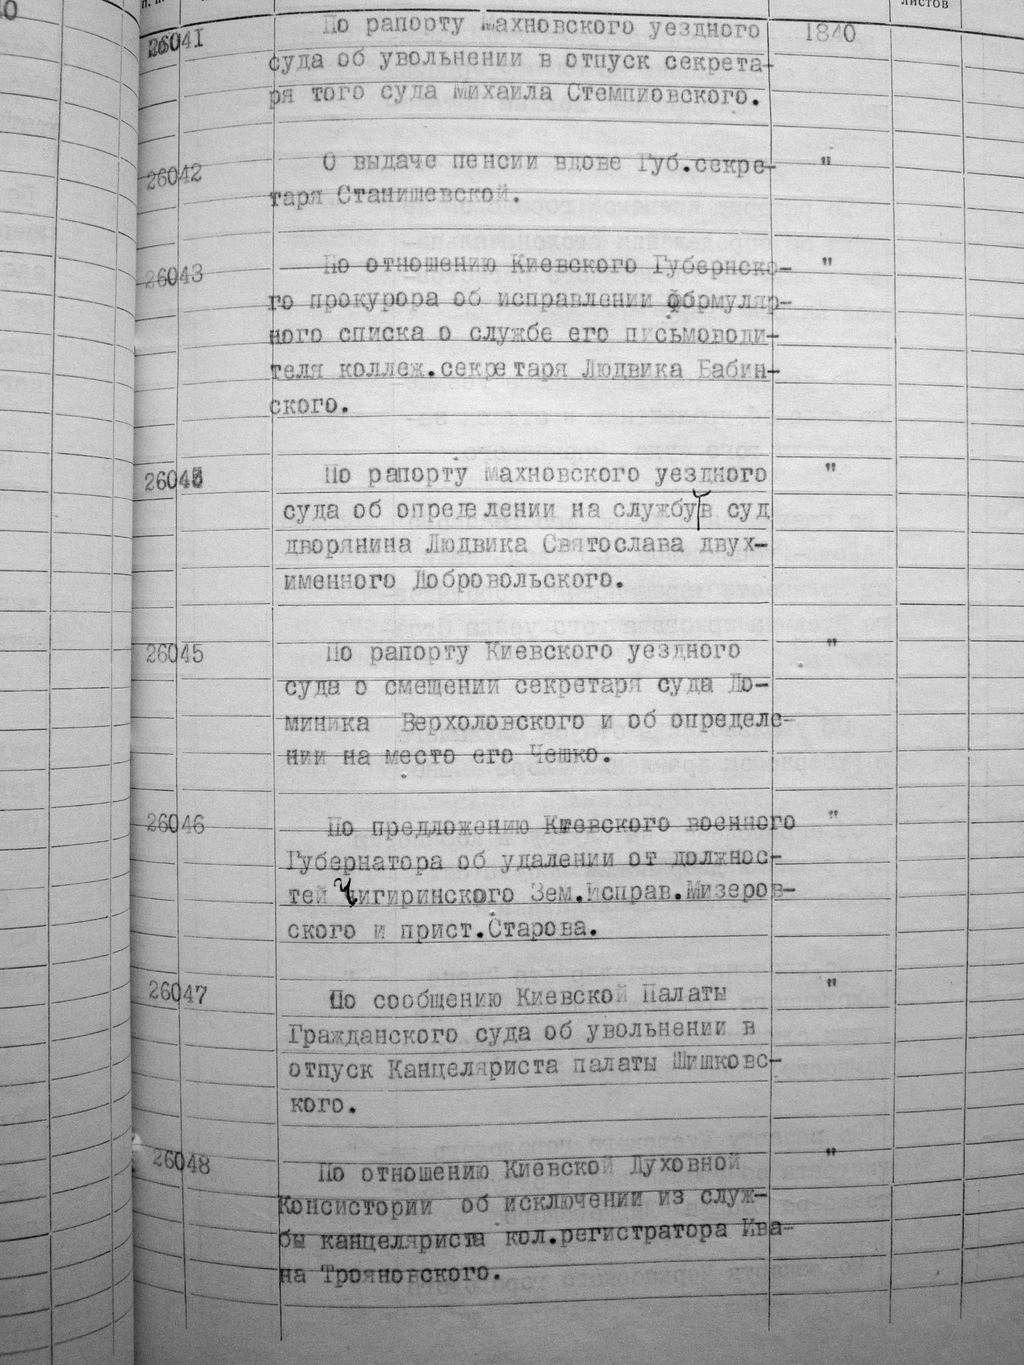 листов
26041 По рапорту Махновского уездного 1840
суда об увольнении в отпуск секрета-
ря того суда Михаила Стемпиовского.
26042 О выдаче пенсии вдове Губ.секре- "
таря Станишевской.
26043 По отношению Киевского Губернско- "
го прокурора об исправлении формуляр-
ного списка о службе его письмоводи-
теля коллеж.секретаря Людвика Бабин-
ского.
По рапорту Махновского уездного "
суда об определении на службу в суд
дворянина Людвика Святослава двух-
именного Добровольского.
26045 По рапорту Киевского уездного "
суда о смещении секретаря суда До-
миника Верхоловского и об определе-
нии на место его Чешко.
26046 По предложению Киевского военного "
Губернатора об удалении от должнос-
тей Чигиринского Зем.Исправ.Мизеров-
ского и прист.Старова.
26047 По сообщению Киевской Палаты "
Гражданского суда об увольнении в
отпуск Канцеляриста палаты Шишковс-
кого.
26048 По отношению Киевской Духовной "
Консистории об исключении из служ-
бы канцеляриста кол.регистратора Ива-
на Трояновского.